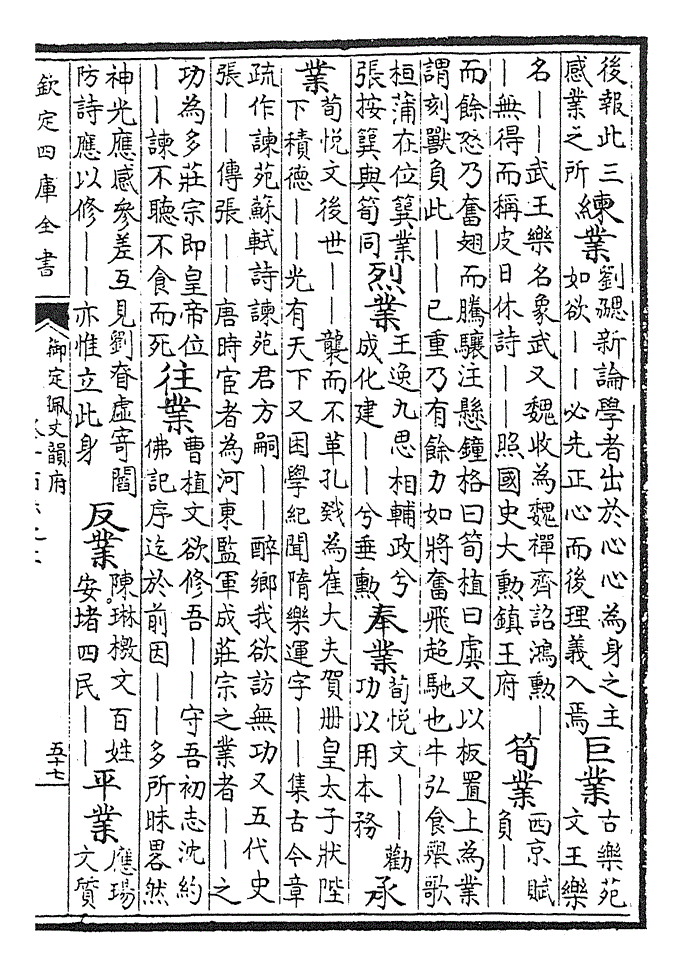 後報此三
感業之所
練業
劉勰新論學者出於心心為身之主
如欲――必先正心而後理義入焉
巨業
古樂苑
文王樂
名――武王樂名象武又魏收為魏禪齊詔鴻勲―
―無得而稱皮日休詩――照國史大勲鎮王府
筍業
西京賦
負――
而餘怒乃奮翅而騰驤注懸鐘格曰筍植曰虡又以板置上為業
謂刻獸負此――已重乃有餘力如將奮飛超馳也牛弘食舉歌
桓蒲在位簨業
張按簨與筍同
烈業
王逸九思相輔政兮
成化建――兮垂勲
奉業
荀悅文――勸
功以用本務
承
業
荀悅文後世――襲而不革孔戣為崔大夫賀册皇太子狀陛
下積德――光有天下又困學紀聞隋樂運字――集古今章
疏作諫苑蘇軾詩諫苑君方嗣――醉鄉我欲訪無功又五代史
張――傳張――唐時宦者為河東監軍成莊宗之業者――之
功為多莊宗即皇帝位
――諫不聽不食而死
往業
曹植文欲修吾――守吾初志沈約
佛記序迄於前因――多所昧畧然
神光應感參差互見劉眘虛寄閻
防詩應以修――亦惟立此身
反業
陳琳檄文百姓
安堵四民――
平業
應瑒
文質
欽定四庫全書
御定珮文韻府
五十七